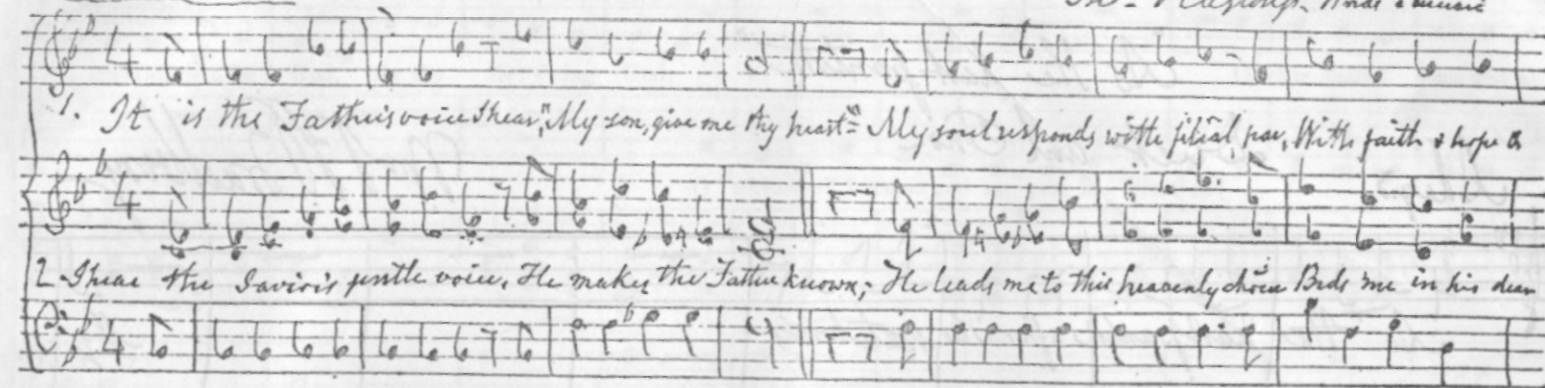 Words & music
1. It is the Father's voice I hear, "My son, give me thy heart" = My soul responds with filial , With faith & hope &
2 I hear the Savior's gentle voice, He makes the Father known; He leads me to this heavenly choice Bids me in his dear